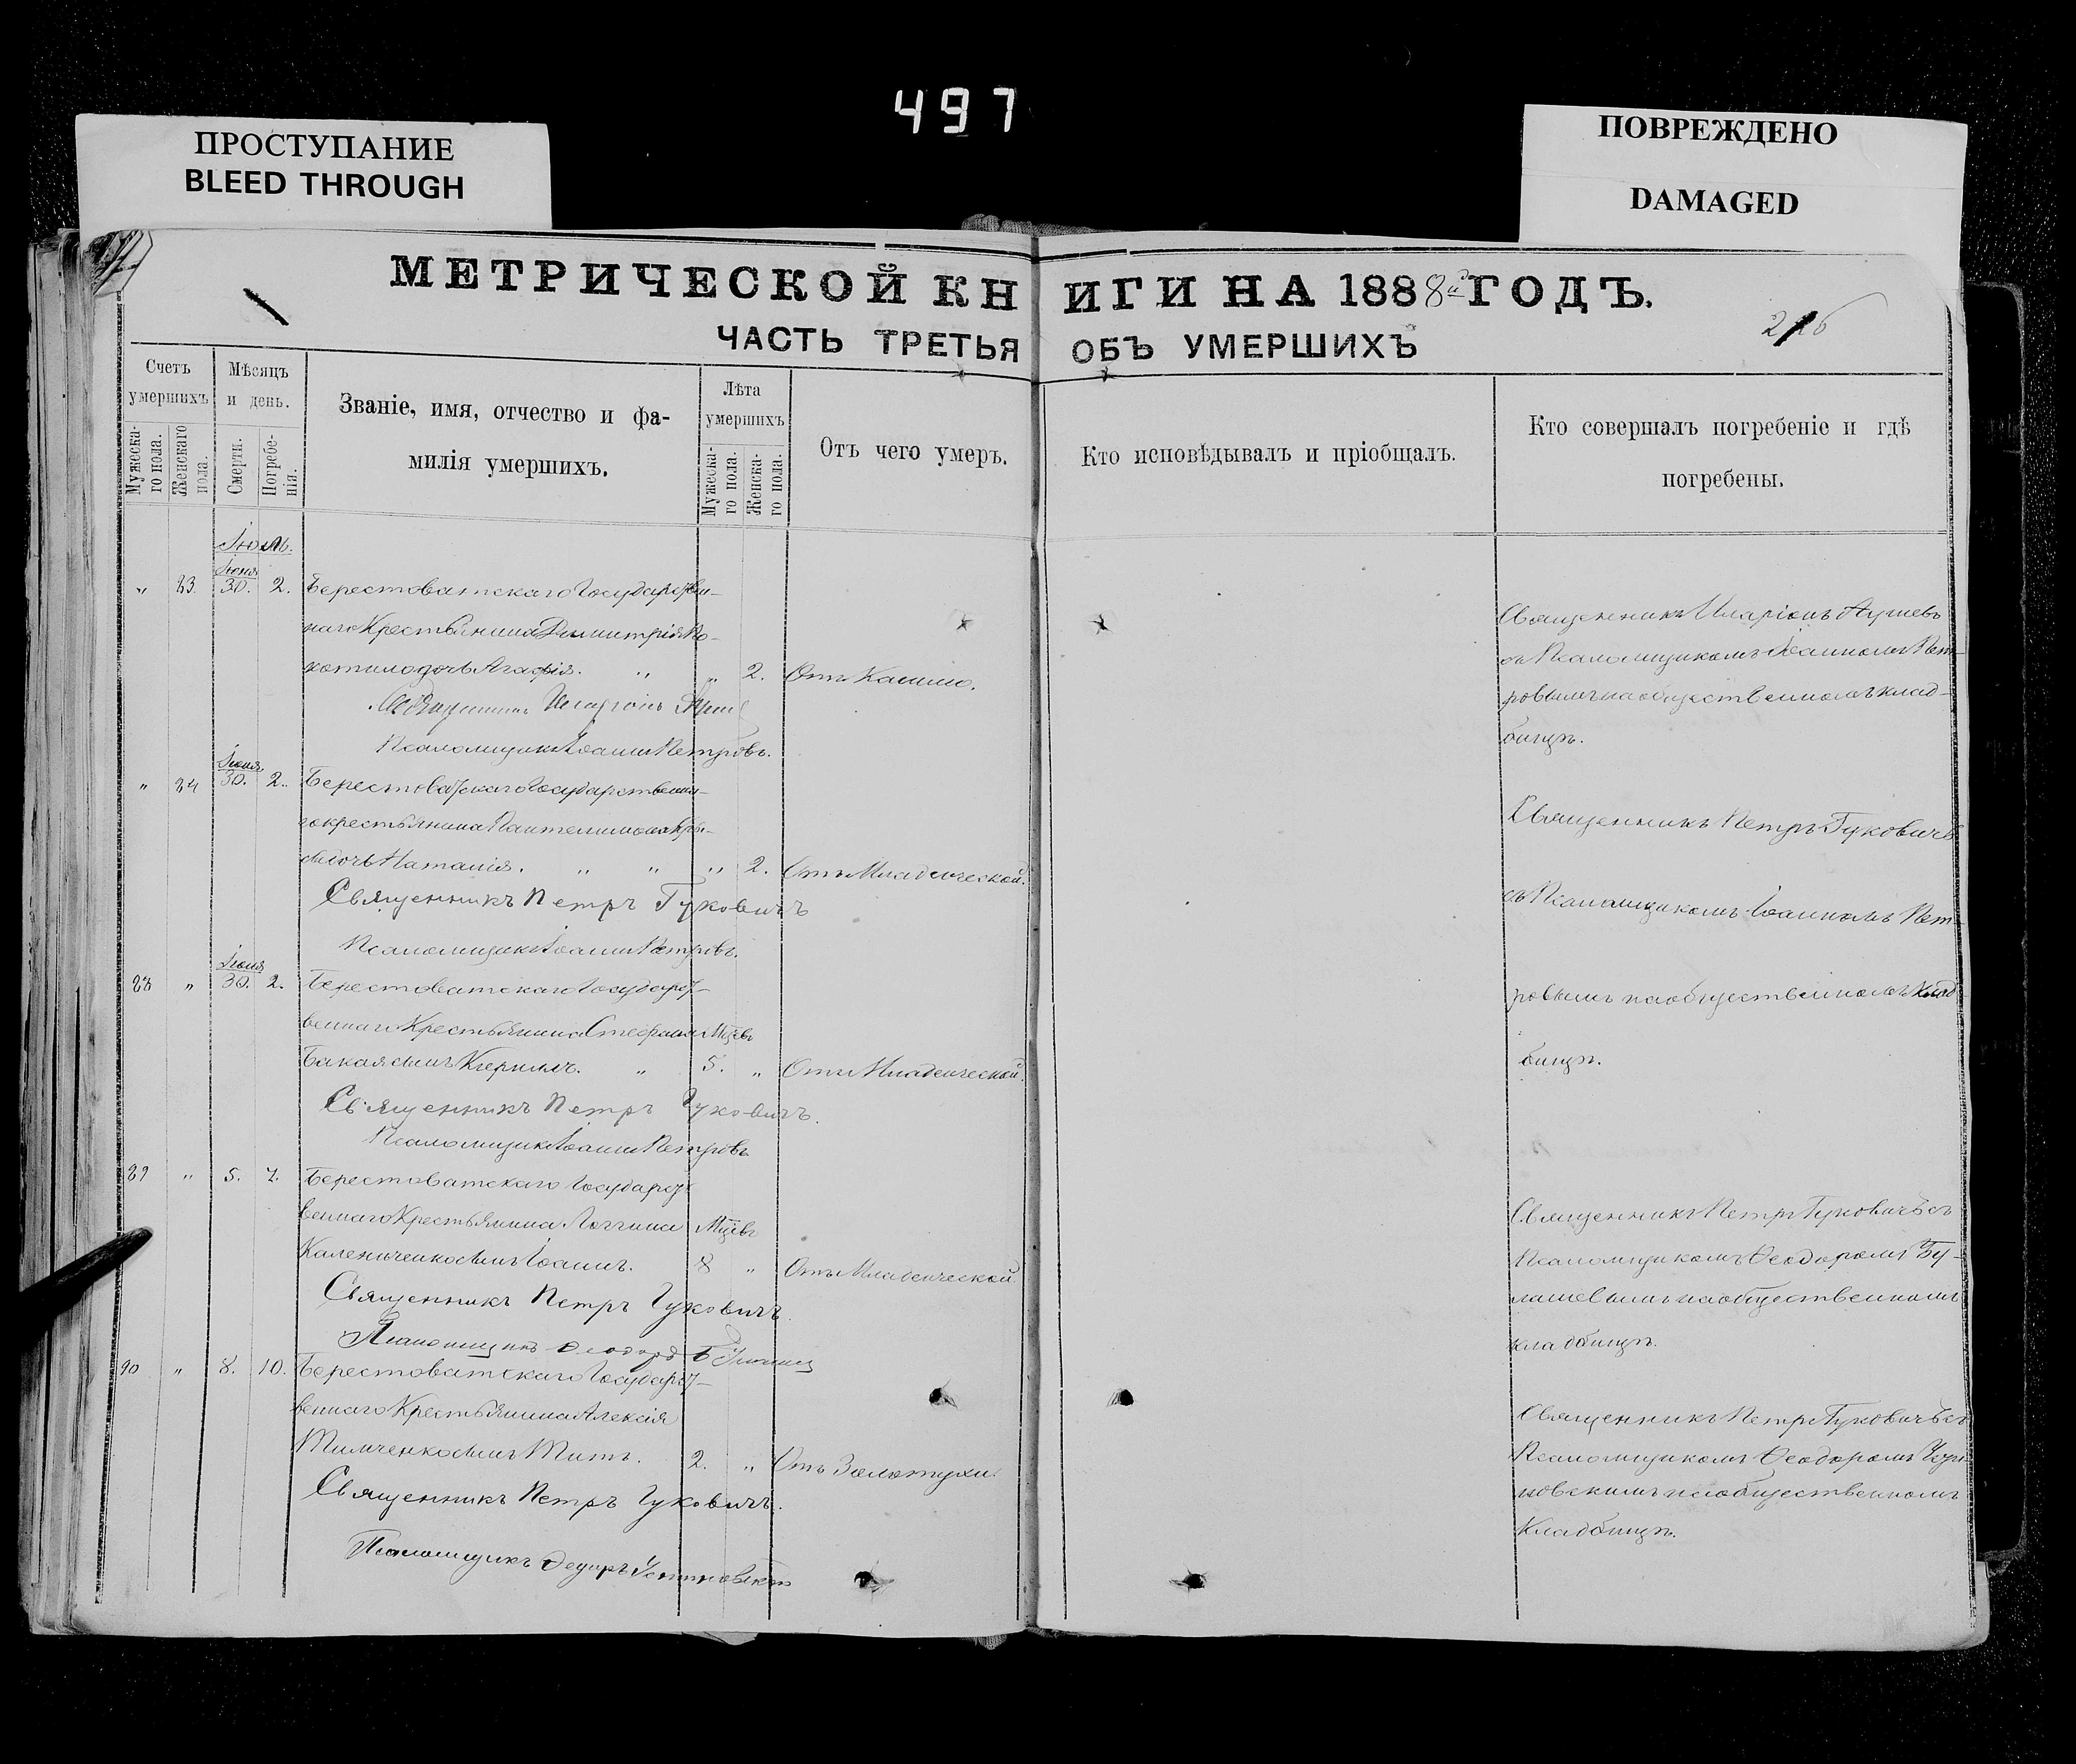 497
ПРОСТУПАНИЕ
BLEED THROUGH
ПОВРЕЖДЕНО
DAMAGED
МЕТРИЧЕСКОЙ КНИГИ НА 1888й ГОДЪ.
ЧАСТЬ ТРЕТЬЯ ОБЪ УМЕРШИХЪ
Счетъ умершихъ
Мужеска-го пола.
Женскаго пола.
Мѣсяцъ и день.
Смерти.
Погребе-нія.
Званіе, имя, отчество и фа-
милія умершихъ.
Лѣта умершихъ
Мужеска-го пола.
Женска-го пола.
Отъ чего умеръ.
Кто исповѣдывалъ и пріобщалъ.
Кто совершалъ погребеніе и гдѣ
погребены.
Іюль.
Іюня
" 83 30. 2. Берестоватскаго Государствен-
наго Крестьянина Димитрія По-
котило дочь Агафія. " " 2. Отъ Кашлю.
Священникъ Иларіонъ
Псаломщикъ Іоаннъ Петровъ.
Священникъ Иларіонъ
съ Псаломщикомъ Іоанномъ Пет-
ровымъ на общественномъ клад-
бищѣ.
Іюня
" 84 30. 2. Берестоватскаго Государственна-
го крестьянина Пантелимона
дочь Наталія. " " " 2. Отъ Младенческой.
Священникъ Петръ Гуковичъ
Псаломщикъ Іоаннъ Петровъ.
Священникъ Петръ Гуковичъ
съ Псаломщикомъ Іоанномъ Пет-
ровымъ на общественномъ клад
бищѣ.
Іюня
88 " 30. 2. Берестоватскаго Государст-
веннаго Крестьянина Стефана Мцѣв
Бакая сынъ Кирилъ. " 5. " Отъ Младенческой.
Священникъ Петръ Гуковичъ.
Псаломщикъ Іоаннъ Петровъ
89 " 5. 7. Берестоватскаго Государст
веннаго Крестьянина Логгина Мцѣв
Калениченко сынъ Іоаннъ. 8 " Отъ Младенческой.
Священникъ Петръ Гуковичъ
Псаломщикъ Ѳеодоръ
Священникъ Петръ Гуковичъ съ
Псаломщикомъ Ѳеодоромъ Бу-
лашевымъ на общественномъ
кладбищѣ.
90 " 8. 10. Берестоватскаго Государст-
веннаго Крестьянина Алексія
Тимченко сынъ Титъ. 2. " Отъ Золотухи.
Священникъ Петръ Гуковичъ.
Псаломщикъ Ѳедоръ
Священникъ Петръ Гуковичъ съ
Псаломщикомъ Ѳеодоромъ
новскимъ на общественномъ
Кладбищѣ.